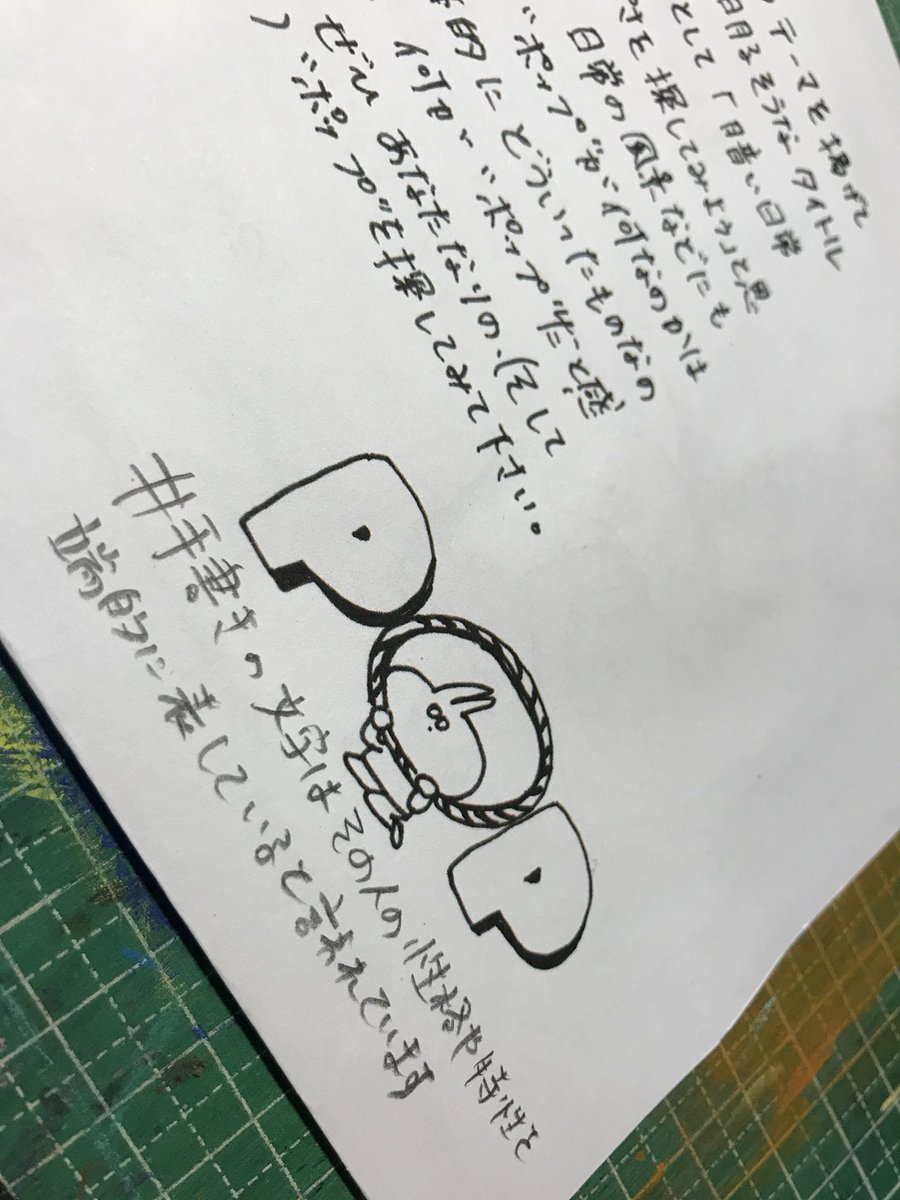 テーマを掲げて
明るそうな タイトル
として 「暗い日常
さを探してみよう」と思
日常の風景などにも
"ポップ"が何なのかは
的に どういったものなの
何が "ポップ"だと感
ぜひ あなたなりの、(そして
"ポップ"を探してみて下さい。
POP
#手書きの文字はその人の性格や
端的に表していると言われています